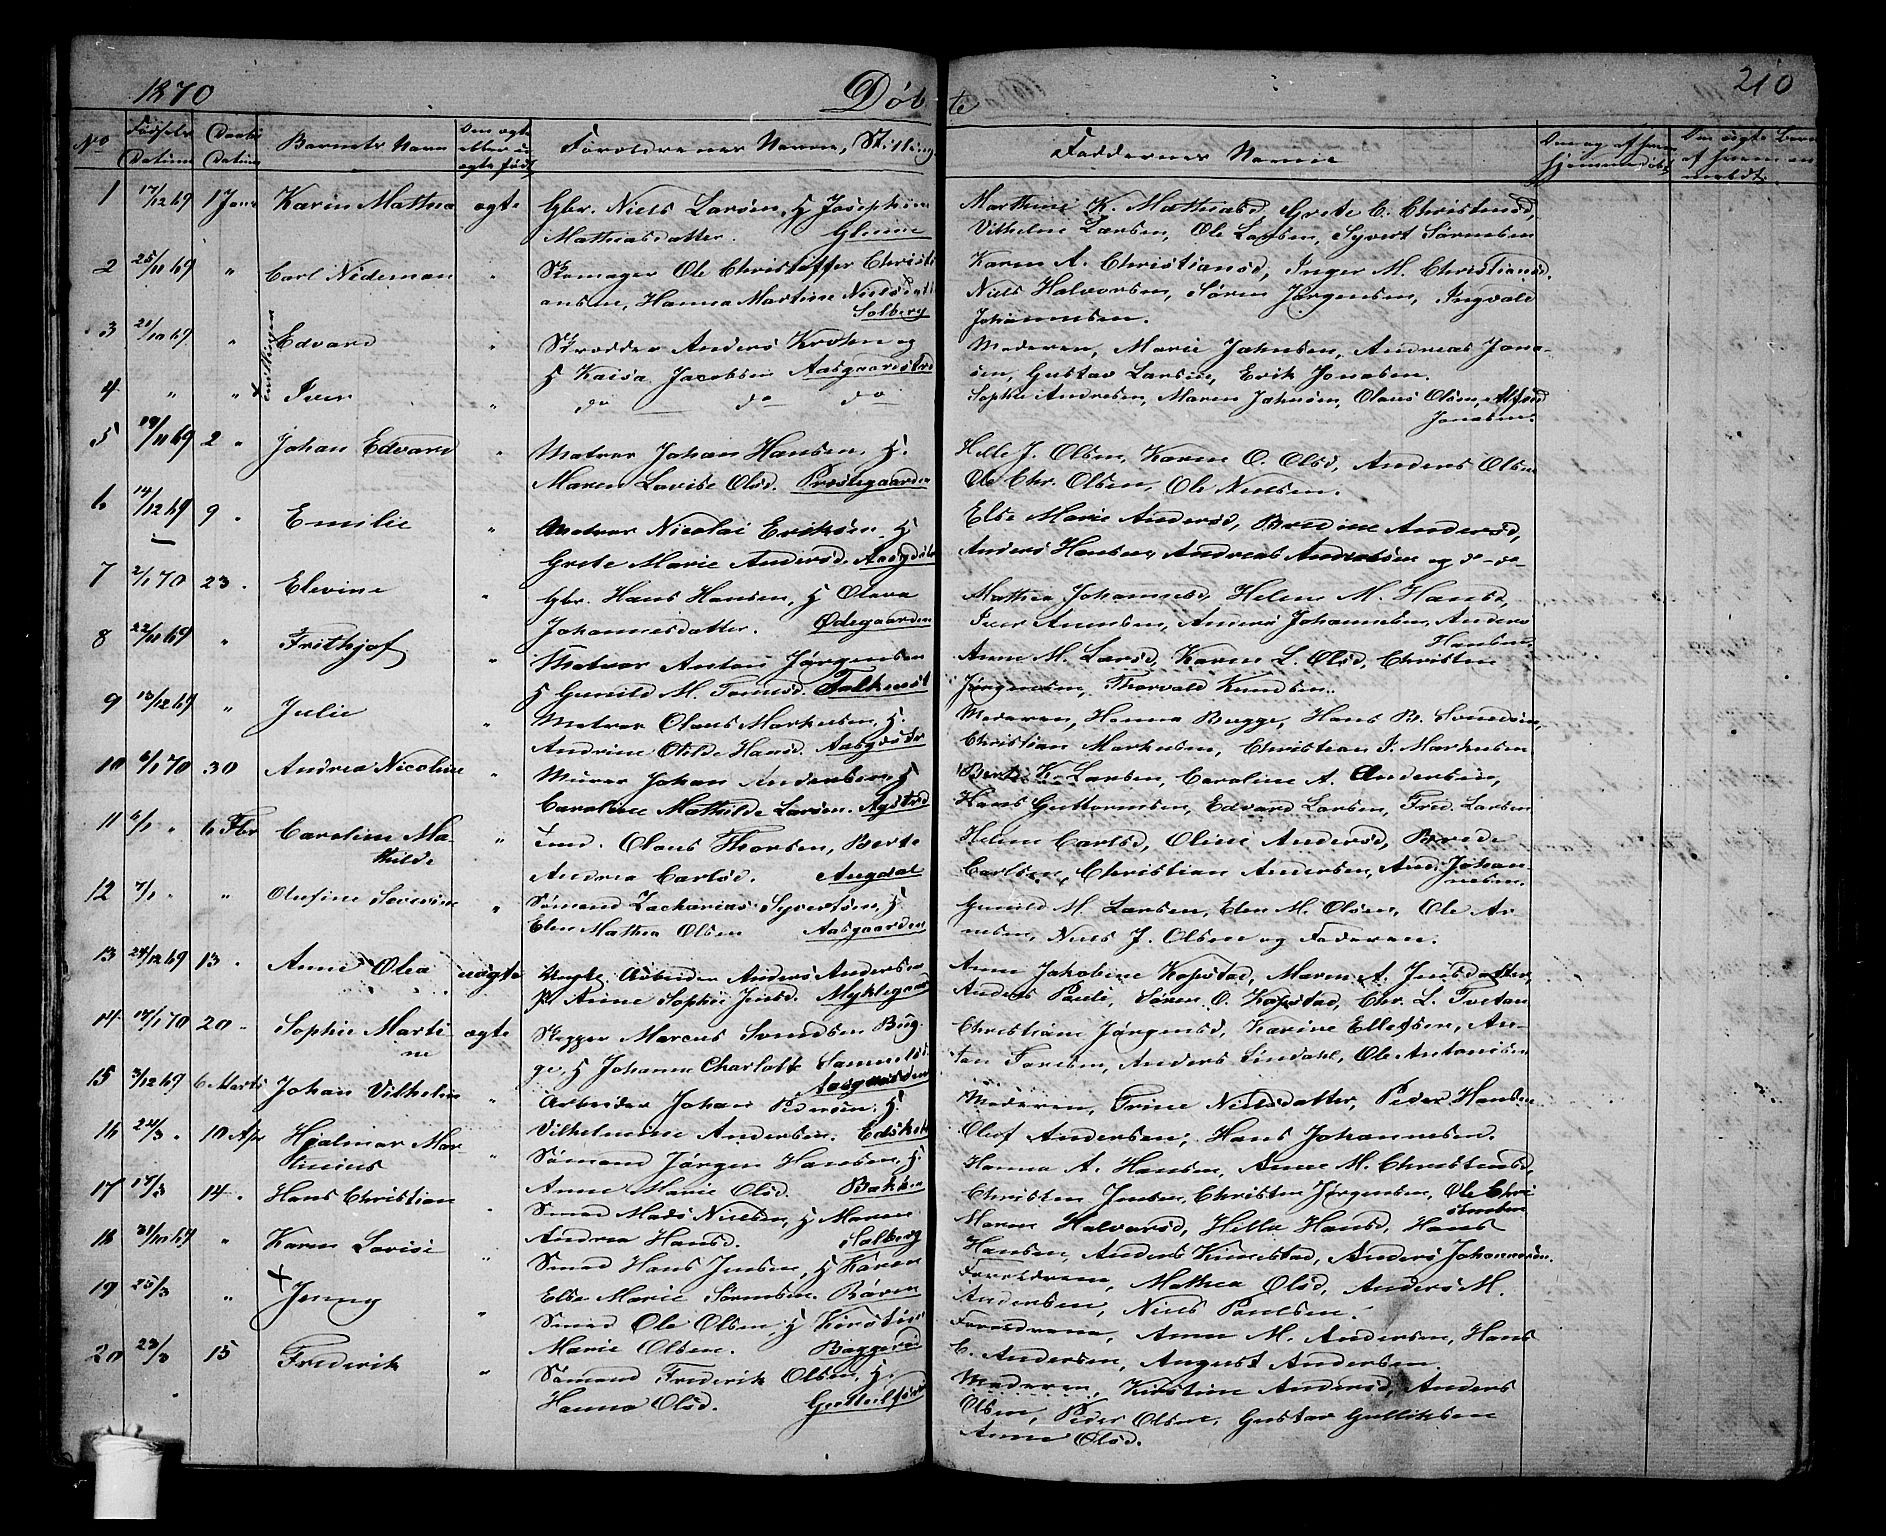 1870 Døbte 210
No Fødsels Datum Daabs Datum Barnets Navn Om ægte eller uægte født Forældrenes Navne, Stilling Faddernes Navne
1 17/12 69 1 Janr Karin Mathea ægte Gbr. Niels Larsen, H Josephine Marthine K. Mathiasd, Grete C. Christensd,
Mathiasdatter. Glenne Vilhelm Larsen, Ole Larsen, Syvert Sørensen
2 25/11 69 " Carl Nideman " Skomager Ole Christoffer Christi Karen A. Christiansd, Inger M. Christiansd.
ansen, Hanna Martine Nielsdatt Niels Halvorsen, Søren Jørgensen, Ingvald
Solberg Johannesen.
3 21/10 69 " Edvard " Skrædder Anders Krohn og Moderen, Marie Jahnsen, Andreas Jona-
H Kaisa Jacobsen Aasgaardstrd sen, Gustav Larsen, Erik Jonasen.
4 " " + Tvillinger Iver " do do do Sophie Andresen, Maren Jahnsen, Olaus Olsen, Alfred
Jonasen.
5 19/11 69 2 " Johan Edvard " Matros Johan Hansen, H. Helle J. Olsen, Karen O. Olsd, Anders Olsen
Maren Lovise Olsd. Præstegaarden Ole Chr. Olsen, Ole Nielsen.
6 14/12 69 9 " Emilie " Matros Nicolai Eriksen, H Else Marie Andersd, Bredine Andersd,
Grete Marie Andersd. Aasgdstr Anders Hansen, Andreas Andersen og d-de
7 2/1 70 23 " Elevine " Gbr. Hans Hansen, H Olava Mathea Johannesd, Helene M. Hansd,
Johannesdatter. Ødegaarden Iver Anensen, Anders Johannesen, Anders
Hansen
8 22/11 69 " Frithjof " Matros Anton Jørgensen Anne M. Larsd, Karen L. Olsd, Christen
H Gunild M. Tomesd. Falkensten Jørgensen, Thorvald Knudsen.
9 13/12 69 " Julie " Matros Olaus Markusen, H. Moderen, Hanna Bugge, Hans B. Svendsen,
Andrine Otilde Hansd. Aasgdstr Christian Markusen, Christian J. Markusen
10 6/1 70 30 Andrea Nicoline " Murer Johan Andersen, H Berte K. Larsen, Caroline A. Andersen,
Caroline Mathilde Larsen. Agstrd Hans Guttormsen, Edvard Larsen, Fred. Larsen
11 6/1 " 6 Fbr Caroline Ma- " Tømd. Olaus Thorsen, Berte Helene Carlsd, Oline Andersd, Brede
thilde Andrea Carlsd. Augdal Carlsen, Christian Andersen, And. Johan-
nesen.
12 7/1 " " Olufine Severine " Sømand Zacharias Syvertsen, H. Gunild M. Larsen, Elen M. Olsen, Ole Ar-
Elen Mathea Olsen Aasgaarden nesen, Niels J. Olsen og Faderen.
13 24/12 69 13 " Anne Olea uægte Ungk. Arbeider Anders Andersen Anne Jakobine Kopstad, Maren A. Jensdatter,
P. Anne Sophie Jensd. Myklegaar Anders Pauli, Søren O. Kopstad, Chr. L. Tvetan
14 17/1 70 20 " Sophie Marti- ægte Skipper Marcus Svendsen Bug- Christiane Jørgensd, Karine Ellefsen, An-
ne ge, H Johanne Charlotte Samuelsd. ton Faresen, Anders Lindahl, Ole Antonisen
Aasgaardstr
15 3/12 69 6 Marts Johan Vilhelm " Arbeider Johan Pedersen, H. Moderen, Trine Nielsdatter, Peder Hansen
Vilhelmine Andersen. Olaf Andersen, Hans Johannesen.
16 24/3 " 10 Apr Hjalmar Mar- " Sømand Jørgen Hansen, H. Hanna A. Hansen, Anne M. Christensd
tinius Anne Marie Olsd. Bakken Christen Jensen, Christen Jørgensen, Ole Chri
stensen
17 17/3 14 " Hans Christian " Sømd Mads Nielsen, H Maren Maren Halvorsd, Helle Hansd, Hans
Andrea Hansd. Solberg Hansen, Anders Kimestad, Anders Johannesen.
18 31/10 69 " Karen Lovise " Sømd Hans Jensen, H Karen Forældrene, Mathea Olsd, Anders M.
Else Marie Sørensen. Røren Andersen, Niels Paulsen.
19 25/3 " + Jenny " Sømd Ole Olsen, H Kirstine Forældrene, Anne M. Andersen, Hans
Marie Olsen. Baggerød C. Andersen, August Andersen.
20 23/3 15 Frederik " Sømand Frederik Olsen, H. Moderen, Kirstine Andersd, Anders
Hanna Olsd. Olsen, Peder Olsen, Gustav Gulliksen
Anne Olsd.